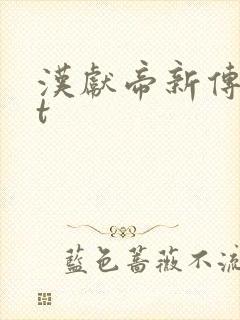 漢獻帝新傳
t
藍色薔薇不流